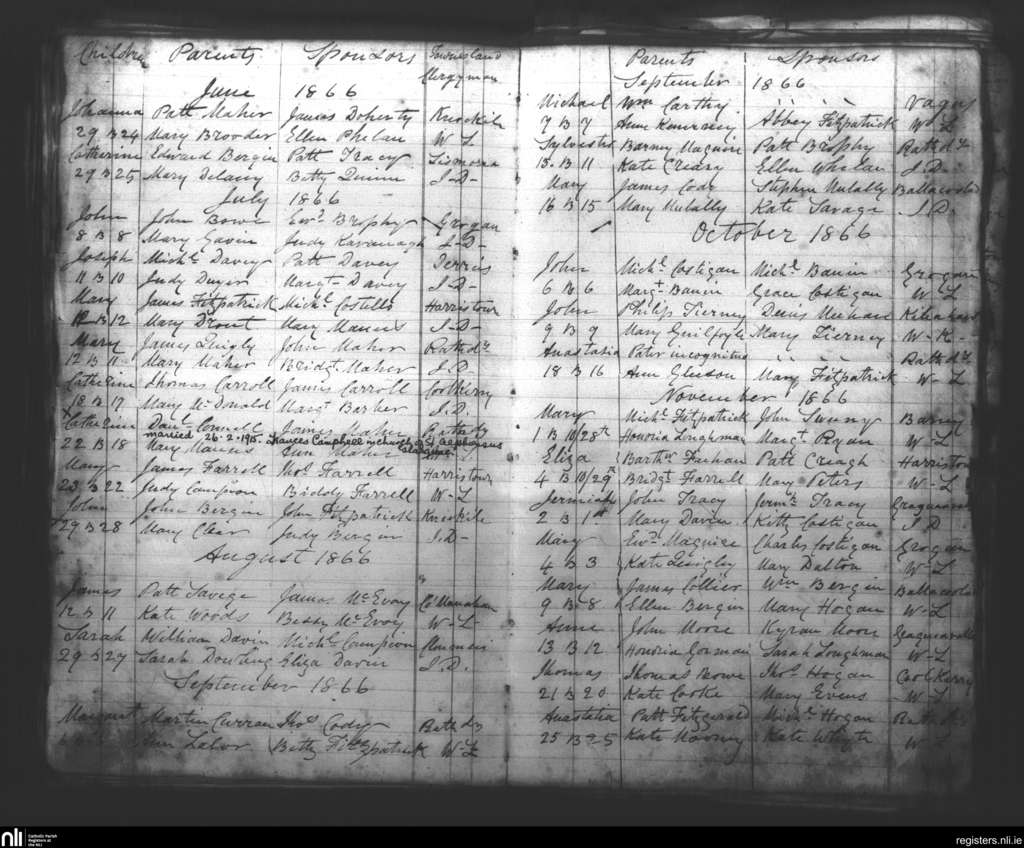 Children Parents Sponsors Townesland
Clergyman
June 1866
Johanna Patt Maher James Doherty Knockile
29 B 24 Mary Brooder Ellen Phelan W L
Catherine Edward Bergin Patt Tracy Lismorea
29 B 25 Mary Delany Betty Quinn J-D-
July 1866
John John Bowe Edwd Brophy Grogan
8 B 8 Mary Gavin Judy Kavanagh J-D-
Joseph Michl Davey Patt Davey
11 B 10 Judy Dwyer Margt Davey J-D-
Mary James Fitzpatrick Michl Costello Harristown
12 B 12 Mary Prout Mary Manus J-D-
Mary James Quigly John Maher Rathdy
12 B 11 Mary Maher Bridgt Maher J.D
Catherine Thomas Carroll James Carroll CoolKerry
18 B 17 Mary McDonald Margt Barker J.D.
x Catherine Danl Connell James Maher Rathdy
married 26.2.1915. Frances Campbell in church of St Alphonsus
Glasgow.
22 B 18 Mary Manus Ann Maher
Mary James Farrell Thos Farrell Harristown
23 B 22 Judy Campion Biddy Farrell W-L
John John Bergin John Fitzpatrick Knockile
29 B 28 Mary Clear Judy Bergin J.D-
August 1866
James Patt Savege James McEvoy C'Manahan
12 B 11 Kate Woods Bessy McEvoy W-L
Sarah William Davin Michl Campion
29 B 27 Sarah Dowling Eliza Davin J.D.
September 1866
Margaret Martin Curran Thos Cody Rathdy
Ann Lalor Betty Fitzpatrick W-L
Parents Sponsors
September 1866
Michael Wm Carthy " " " Vagus
7 B 7 Anne Kennedy Abbey Fitzpatrick W-L
Sylvester Barney Magnier Patt Brophy Rathdy
15 B 11 Kate Creary Ellen Whelan J.D-
Mary James Cody Stephen Mulally
16 B 15 Mary Mulally Kate Savage J.D.
October 1866
John Michl Costigan Michl Banin Grogan
6 B 6 Margt Banin Grace Costigan W-L
John Philip Tierney Denis Meehan
9 B 9 Mary Guilfoyle Mary Tierney W-K-
Anastatia Pater incognitus " " " Rathdy
18 B 16 Ann Gleeson Mary Fitzpatrick W-L
November 1866
Mary Michl Fitzpatrick John Sweeny Barny
1 B 10/28th Honoria Loughman Margt Ryan W-L
Eliza Barthw Feehan Patt Creagh Harristown
4 B 10/29th Bridgt Farrell Mary Peters W-L
Jermiah John Tracy Jermh Tracy
2 B 1st Mary Davin Kitty Costigan J D
Mary Edwd Magnier Charles Costigan Grogan
4 B 3 Kate Quigley Mary Dalton W-L
Mary James Collier Wm Bergin
9 B 8 Ellen Bergin Mary Hogan W-L
Anne John Moore Kyran Moore
13 B 12 Honoria Gorman Sarah Loughman W-L
Thomas Thomas Bowe Thos Hogan CoolKerry
21 B 20 Kate Cooke Mary Evens W-L
Anastatia Patt Fitzgerald Michl Hogan Rathdy
25 B 25 Kate Mooney Kate Whyte W-L
nli Catholic Parish
Registers at
the NLI
registers.nli.ie